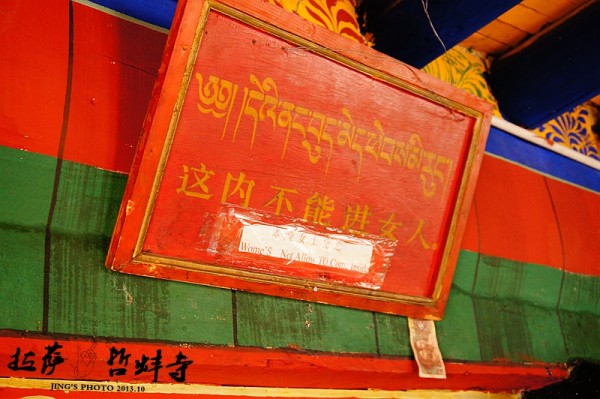 ༄༅། །དེའི་ནང་བུད་མེད་ཕེབས་མི་རུང་།
这内不能进女人。
Wome'S Not Allow TO Come
拉萨 哲蚌寺
JING'S PHOTO 2013.10